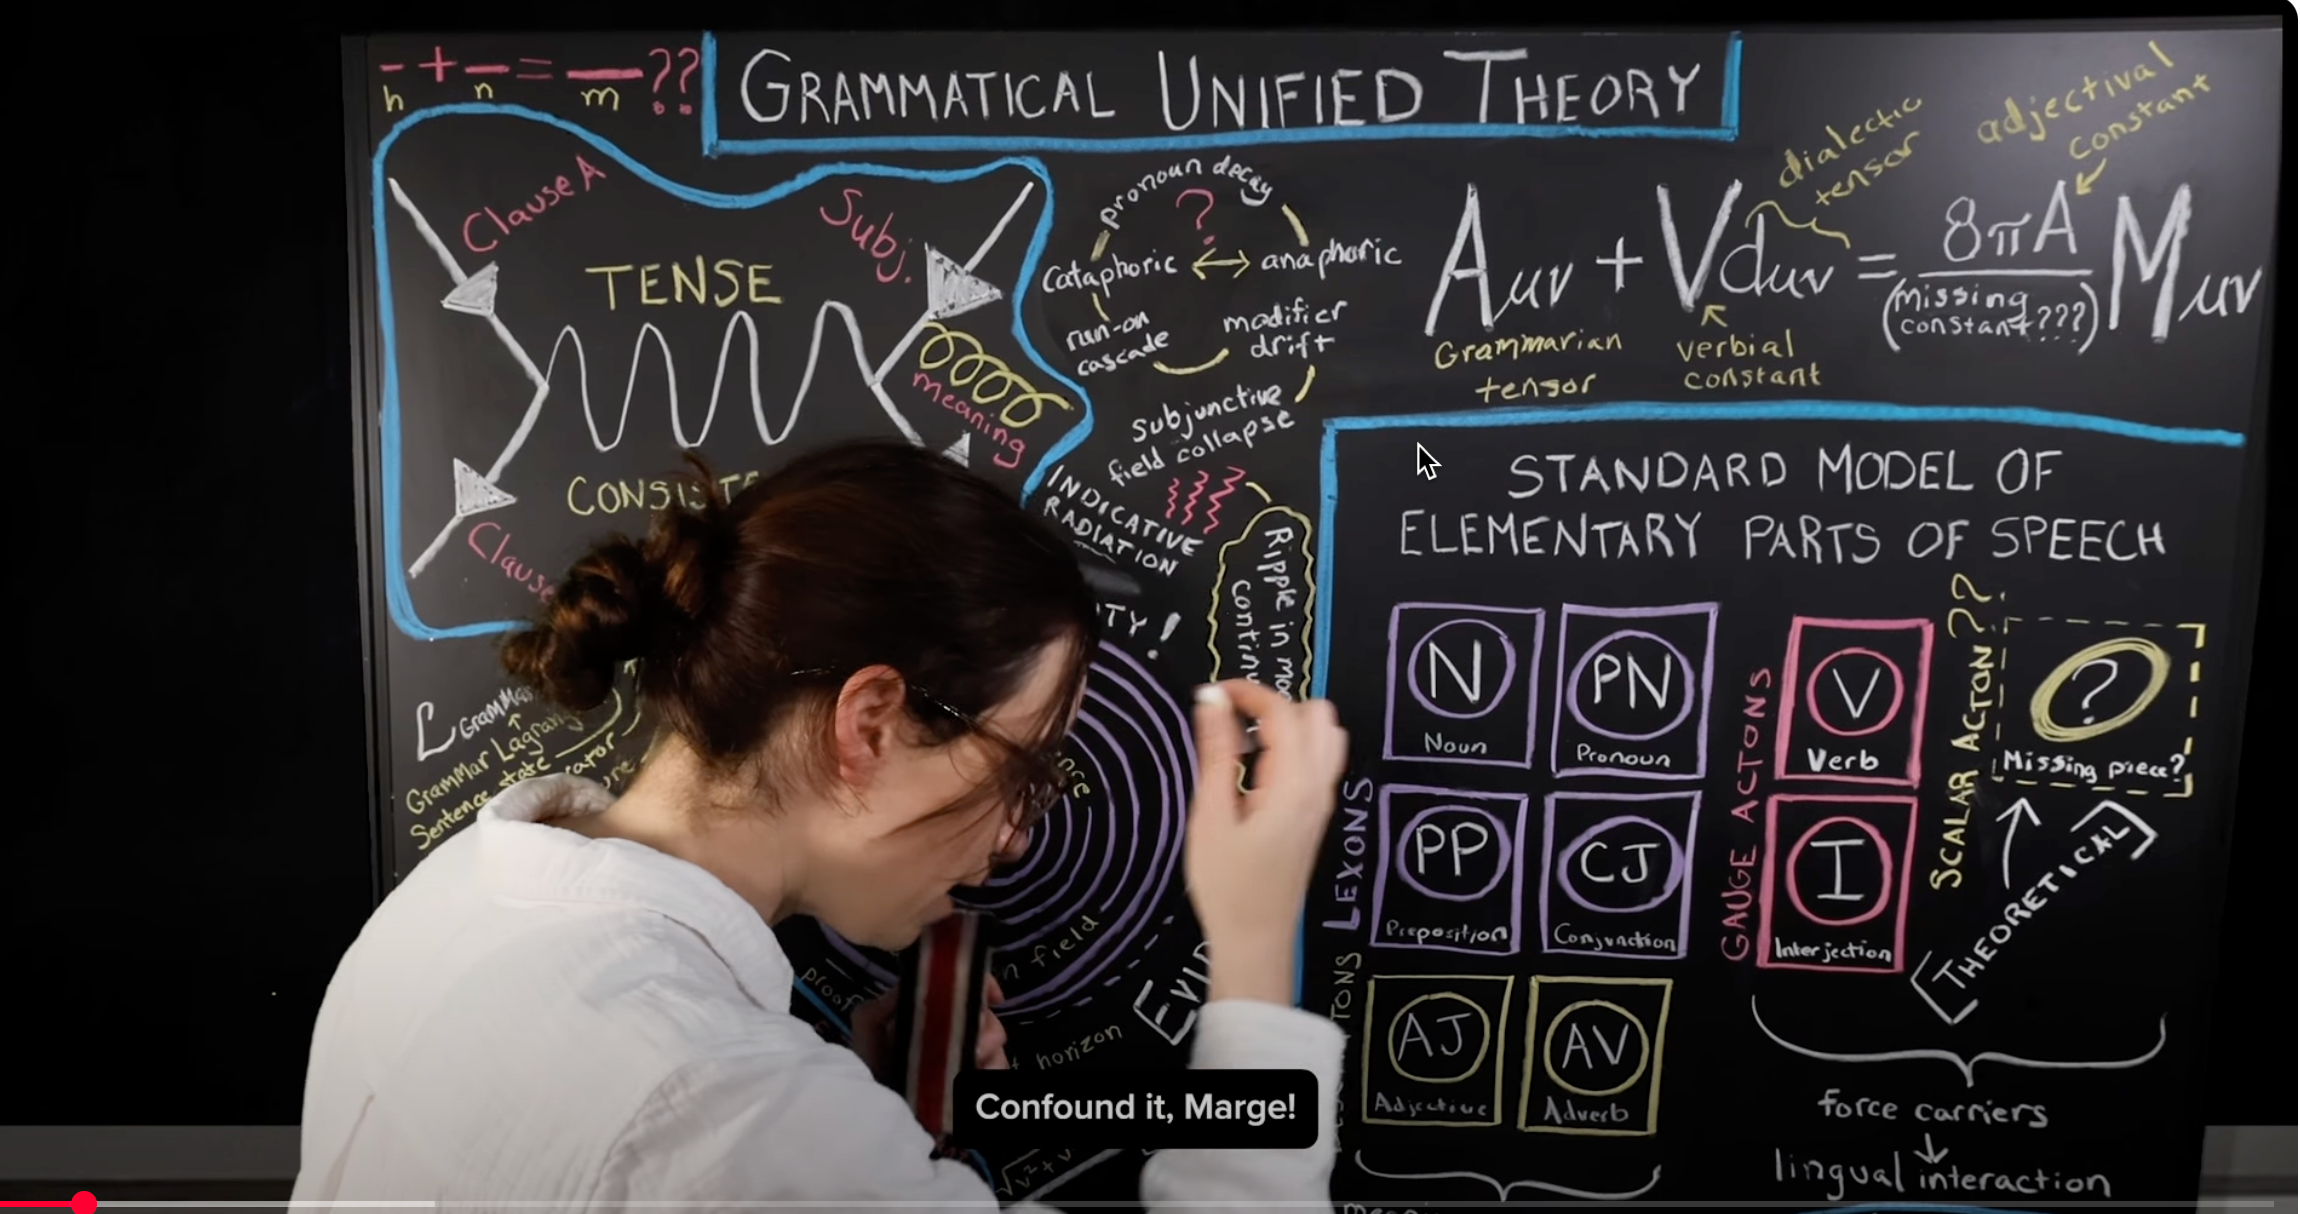 — + — = — ??
h n m
GRAMMATICAL UNIFIED THEORY
Clause A
Subj.
TENSE
meaning
CONSISTE
Clause
pronoun decay
?
cataphoric ↔ anaphoric
run-on
cascade
modifier
drift
subjunctive
field collapse
INDICATIVE
RADIATION
TY!
Ripple in
contin
dialectic
tensor
adjectival
constant
Auv + Vduv = 8πA Muv
(missing
constant???)
Grammarian
tensor
verbial
constant
L Gramma
Grammar Lagrang
Sentence state
ator
ence
n field
proof
horizon
√v²+v
STANDARD MODEL OF
ELEMENTARY PARTS OF SPEECH
LEXONS
N
Noun
PN
Pronoun
PP
Preposition
CJ
Conjunction
TONS
AJ
Adjective
AV
Adverb
GAUGE ACTONS
V
Verb
I
Interjection
SCALAR ACTON??
?
Missing piece?
[THEORETICAL]
force carriers
↓
lingual interaction
Confound it, Marge!